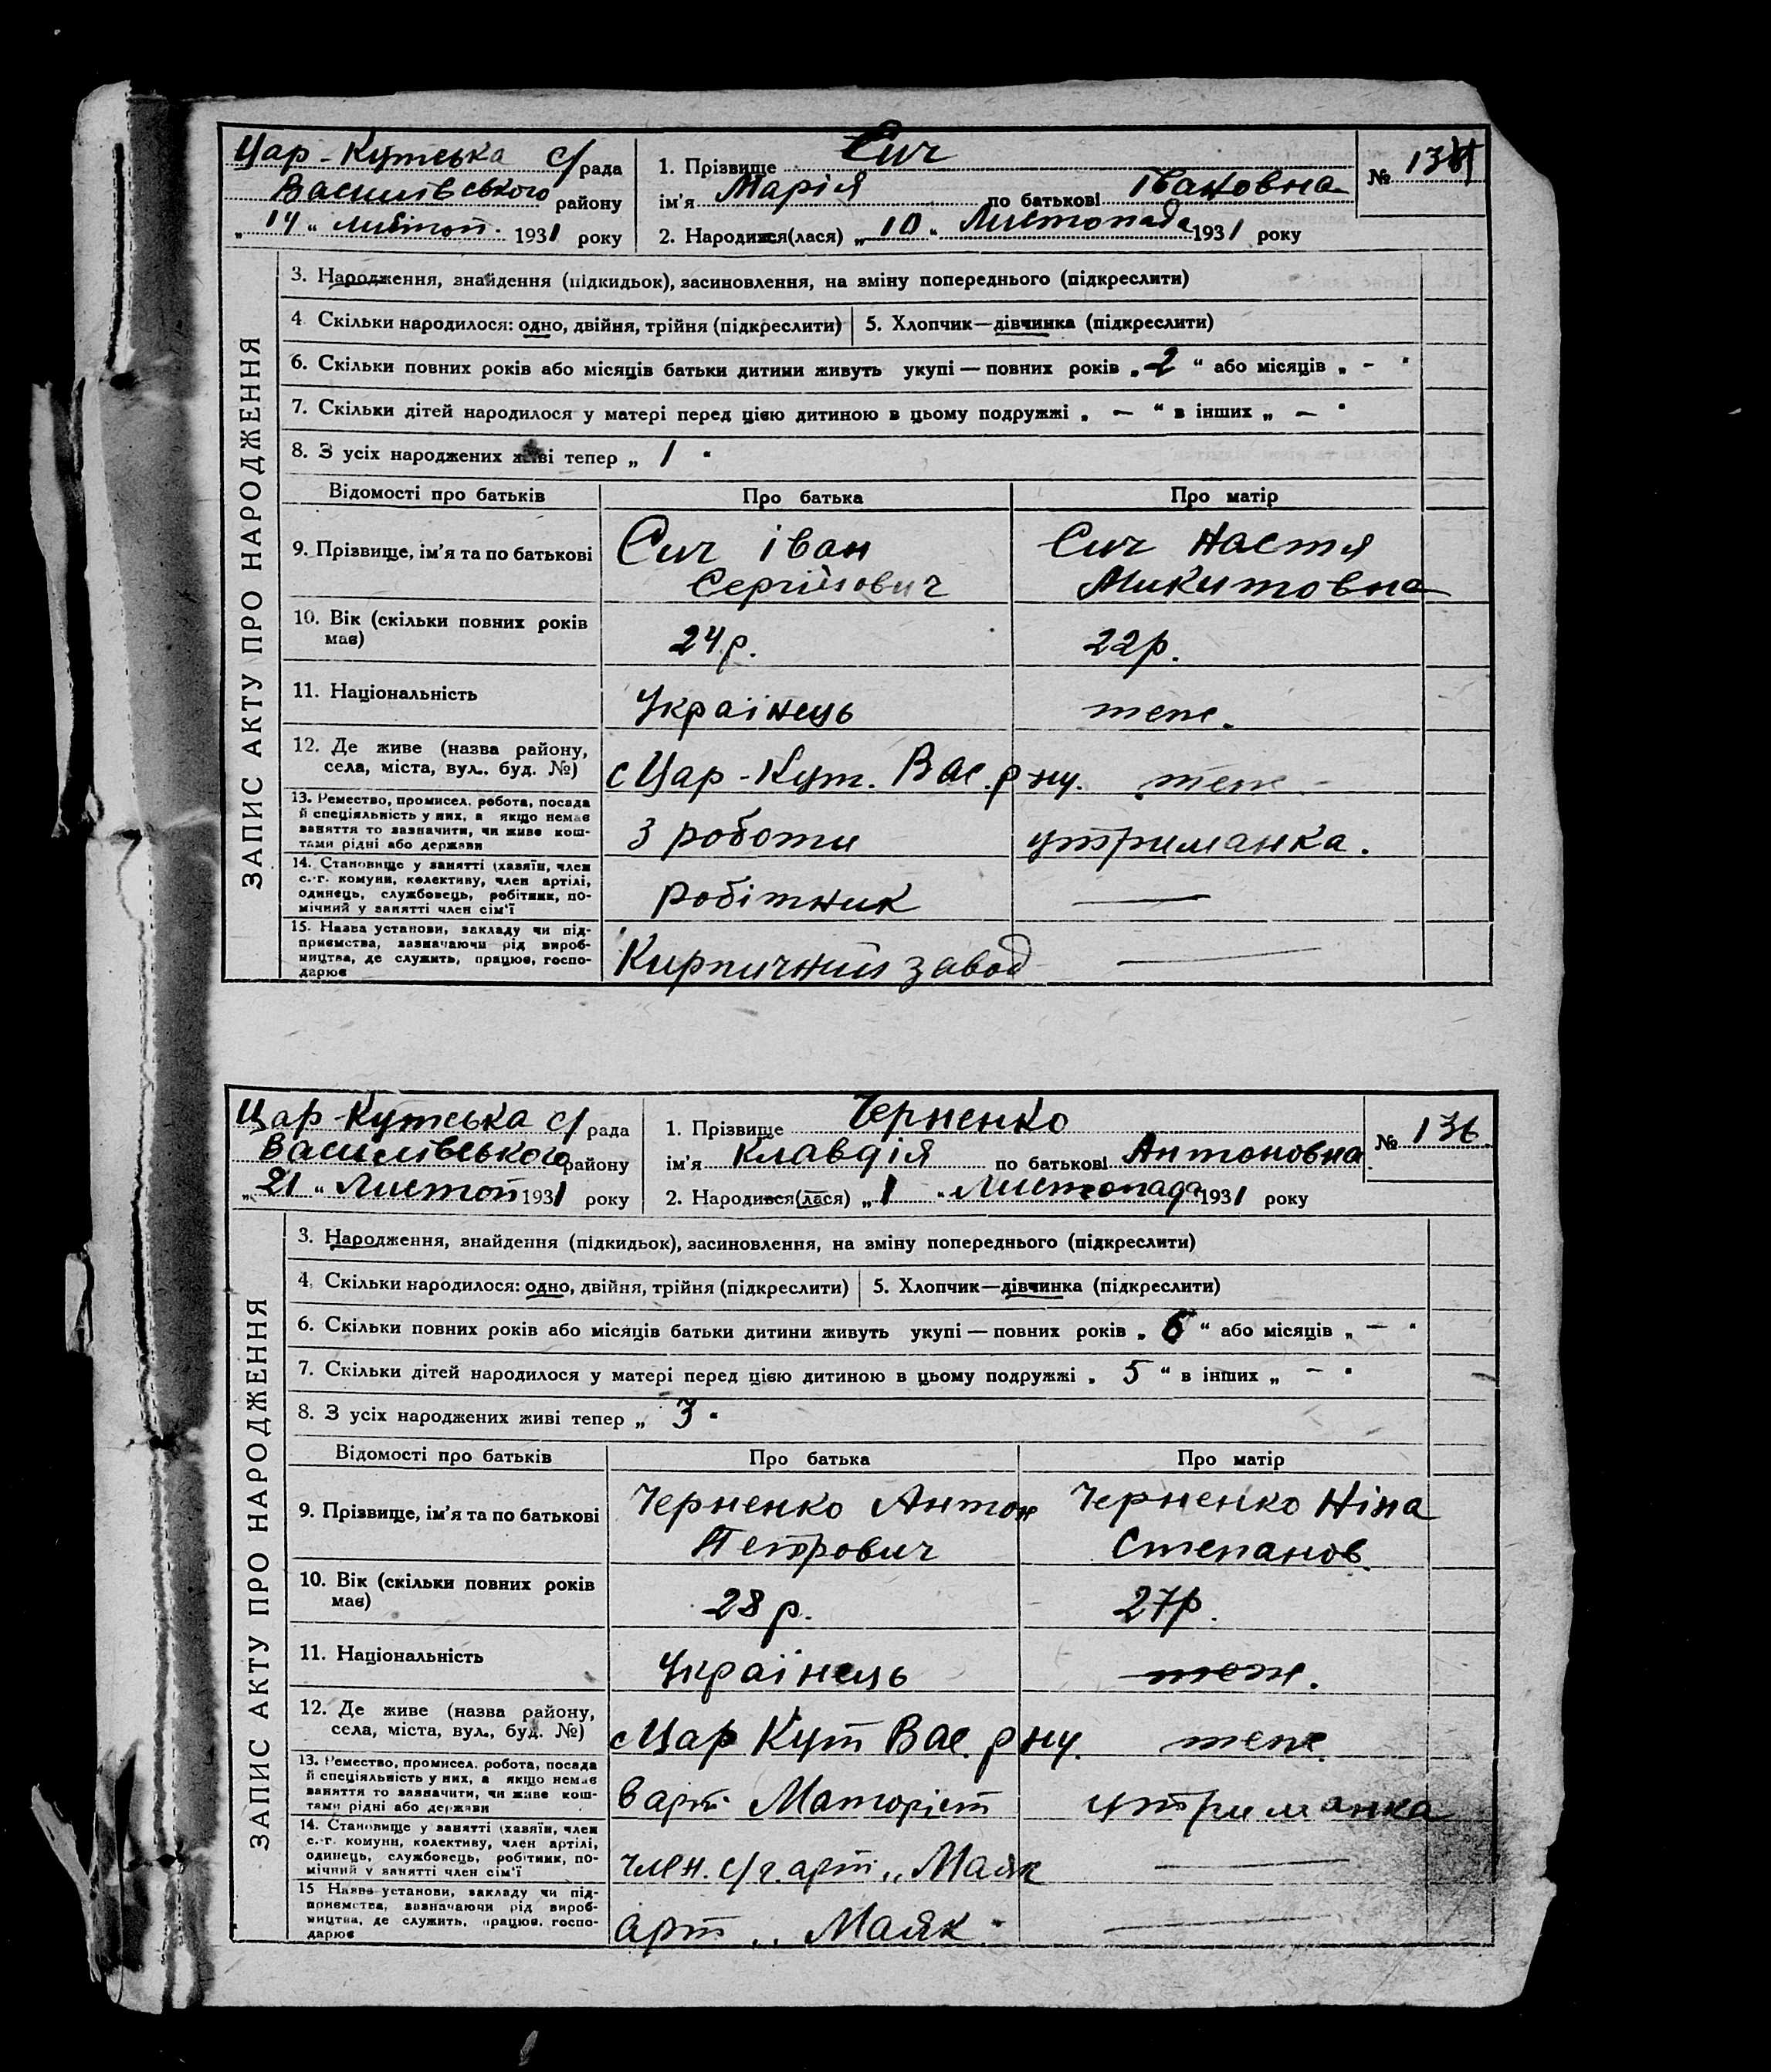 Цар-Кутська с/рада
Василівського району
„14“ листоп. 1931 року
1. Прізвище Сич
ім'я Марія по батькові Івановна
№ 135
2. Народився(лася) „10“ Листопада 1931 року
ЗАПИС АКТУ ПРО НАРОДЖЕННЯ
3. Народження, знайдення (підкидьок), засиновлення, на зміну попереднього (підкреслити)
4 Скільки народилося: одно, двійня, трійня (підкреслити) 5. Хлопчик—дівчинка (підкреслити)
6. Скільки повних років або місяців батьки дитини живуть укупі — повних років „2“ або місяців „ – “
7. Скільки дітей народилося у матері перед цією дитиною в цьому подружжі „ — “ в інших „ — “
8. З усіх народжених живі тепер „ 1 “
Відомості про батьків Про батька Про матір
9. Прізвище, ім'я та по батькові Сич Іван Сич Настя
Сергійович Микитовна
10. Вік (скільки повних років
має) 24 р. 22 р.
11. Національність Українець теж.
12. Де живе (назва району,
села, міста, вул., буд. №) с Цар-Кут. Вас. р-ну. теж
13. Ремество, промисел, робота, посада
й спеціяльність у них, а якщо немає
заняття то зазначити, чи живе кош-
тами рідні або держави
З роботи утриманка.
14. Становище у занятті (хазяїн, член
с.-г. комуни, колективу, член артілі,
одинець, службовець, робітник, по-
мічний у занятті член сім'ї
робітник —
15. Назва установи, закладу чи під-
приємства, зазначаючи рід вироб-
ництва, де служить, працює, госпо-
дарює
Кирпичний завод —
Цар-Кутська с/рада
Василівського району
„21“ Листоп 1931 року
1. Прізвище Черненко
ім'я Клавдія по батькові Антоновна
№ 136
2. Народився(лася) „1“ Листопада 1931 року
ЗАПИС АКТУ ПРО НАРОДЖЕННЯ
3. Народження, знайдення (підкидьок), засиновлення, на зміну попереднього (підкреслити)
4. Скільки народилося: одно, двійня, трійня (підкреслити) 5. Хлопчик—дівчинка (підкреслити)
6. Скільки повних років або місяців батьки дитини живуть укупі — повних років „6“ або місяців „ — “
7. Скільки дітей народилося у матері перед цією дитиною в цьому подружжі „ 5 “ в інших „ — “
8. З усіх народжених живі тепер „ 3 “
Відомості про батьків Про батька Про матір
9. Прізвище, ім'я та по батькові Черненко Антон Черненко Ніна
Петрович Степанов.
10. Вік (скільки повних років
має) 28 р. 27 р.
11. Національність Українець теж.
12. Де живе (назва району,
села, міста, вул., буд. №) с Цар Кут Вас. р ну. теж.
13. Ремество, промисел, робота, посада
й спеціяльність у них, а якщо немає
заняття то зазначити, чи живе кош-
тами рідні або держави
в арт. Маторіст утриманка
14. Становище у занятті (хазяїн, член
с.-г. комуни, колективу, член артілі,
одинець, службовець, робітник, по-
мічний у занятті член сім'ї
член. с/г. арт. „Маяк —
15 Назва установи, закладу чи під-
приємства, зазначаючи рід вироб-
ництва, де служить, працює, госпо-
дарює
арт „ Маяк “ —